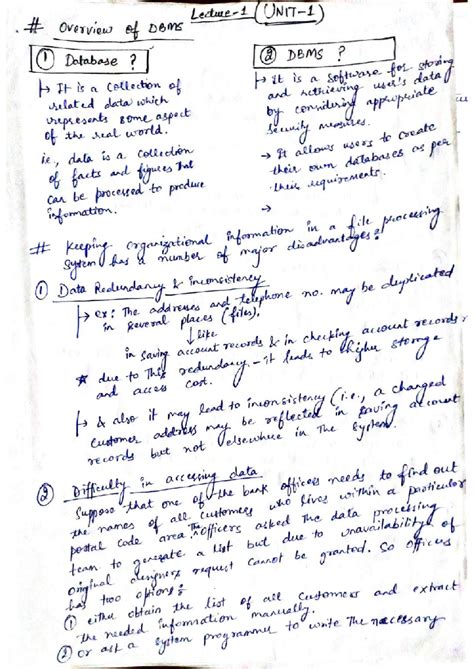 Lecture-1 (UNIT-1)
# Overview of DBMS
① Database ?
↦ It is a collection of
related data which
represents some aspect
of the real world.
i.e., data is a collection
of facts and figures that
can be processed to produce
information.
② DBMS ?
↦ It is a software for storing
and retrieving user's data
by considering appropriate
security measures.
→ It allows users to create
their own databases as per
their requirements.
→
# Keeping organizational information in a file processing
system has a number of major disadvantages :
① Data Redundancy & inconsistency
↦ ex: The addresses and telephone no. may be duplicated
in several places (files).
↓ like
in saving account records & in checking account records
* due to this redundancy - it leads to higher storage
and access cost.
↦ & also it may lead to inconsistency (i.e., a changed
customer address may be reflected in saving account
records but not elsewhere in the system.
② Difficulty in accessing data
Suppose that one of the bank officers needs to find out
the names of all customers who lives within a particular
postal code area. The officers asked the data processing
team to generate a list but due to unavailability of
original designers request cannot be granted. So officers
has two options :
① either obtain the list of all customers and extract
the needed information manually.
② Or ask a system programmer to write the necessary